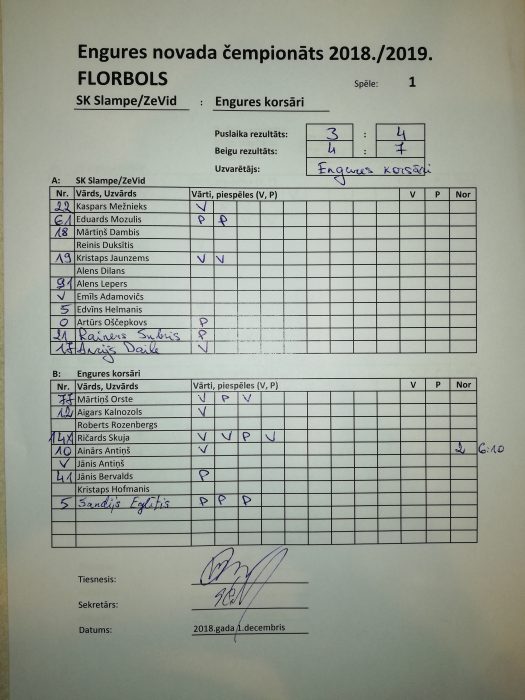 Engures novada čempionāts 2018./2019.
FLORBOLS Spēle: 1
SK Slampe/ZeVid : Engures korsāri
Puslaika rezultāts: 3 : 4
Beigu rezultāts: 4 : 7
Uzvarētājs: Engures korsāri
A: SK Slampe/ZeVid
Nr. Vārds, Uzvārds Vārti, piespēles (V, P) V P Nor
22 Kaspars Mežnieks V
61 Eduards Mozulis P P
18 Mārtiņš Dambis
Reinis Duksitis
19 Kristaps Jaunzems V V
Alens Dilans
91 Alens Lepers
V Emīls Adamovičs
5 Edvīns Helmanis
0 Artūrs Oščepkovs P
21 Rainers P
17 V
B: Engures korsāri
Nr. Vārds, Uzvārds Vārti, piespēles (V, P) V P Nor
77 Mārtiņš Orste V P V
12 Aigars Kalnozols V
Roberts Rozenbergs
Ričards Skuja V V P V
10 Ainārs Antiņš V 2 6:10
V Jānis Antiņš
41 Jānis Bervalds P
Kristaps Hofmanis
5 Sandijs Eglītis P P P
Tiesnesis:
Sekretārs:
Datums: 2018.gada 1.decembris